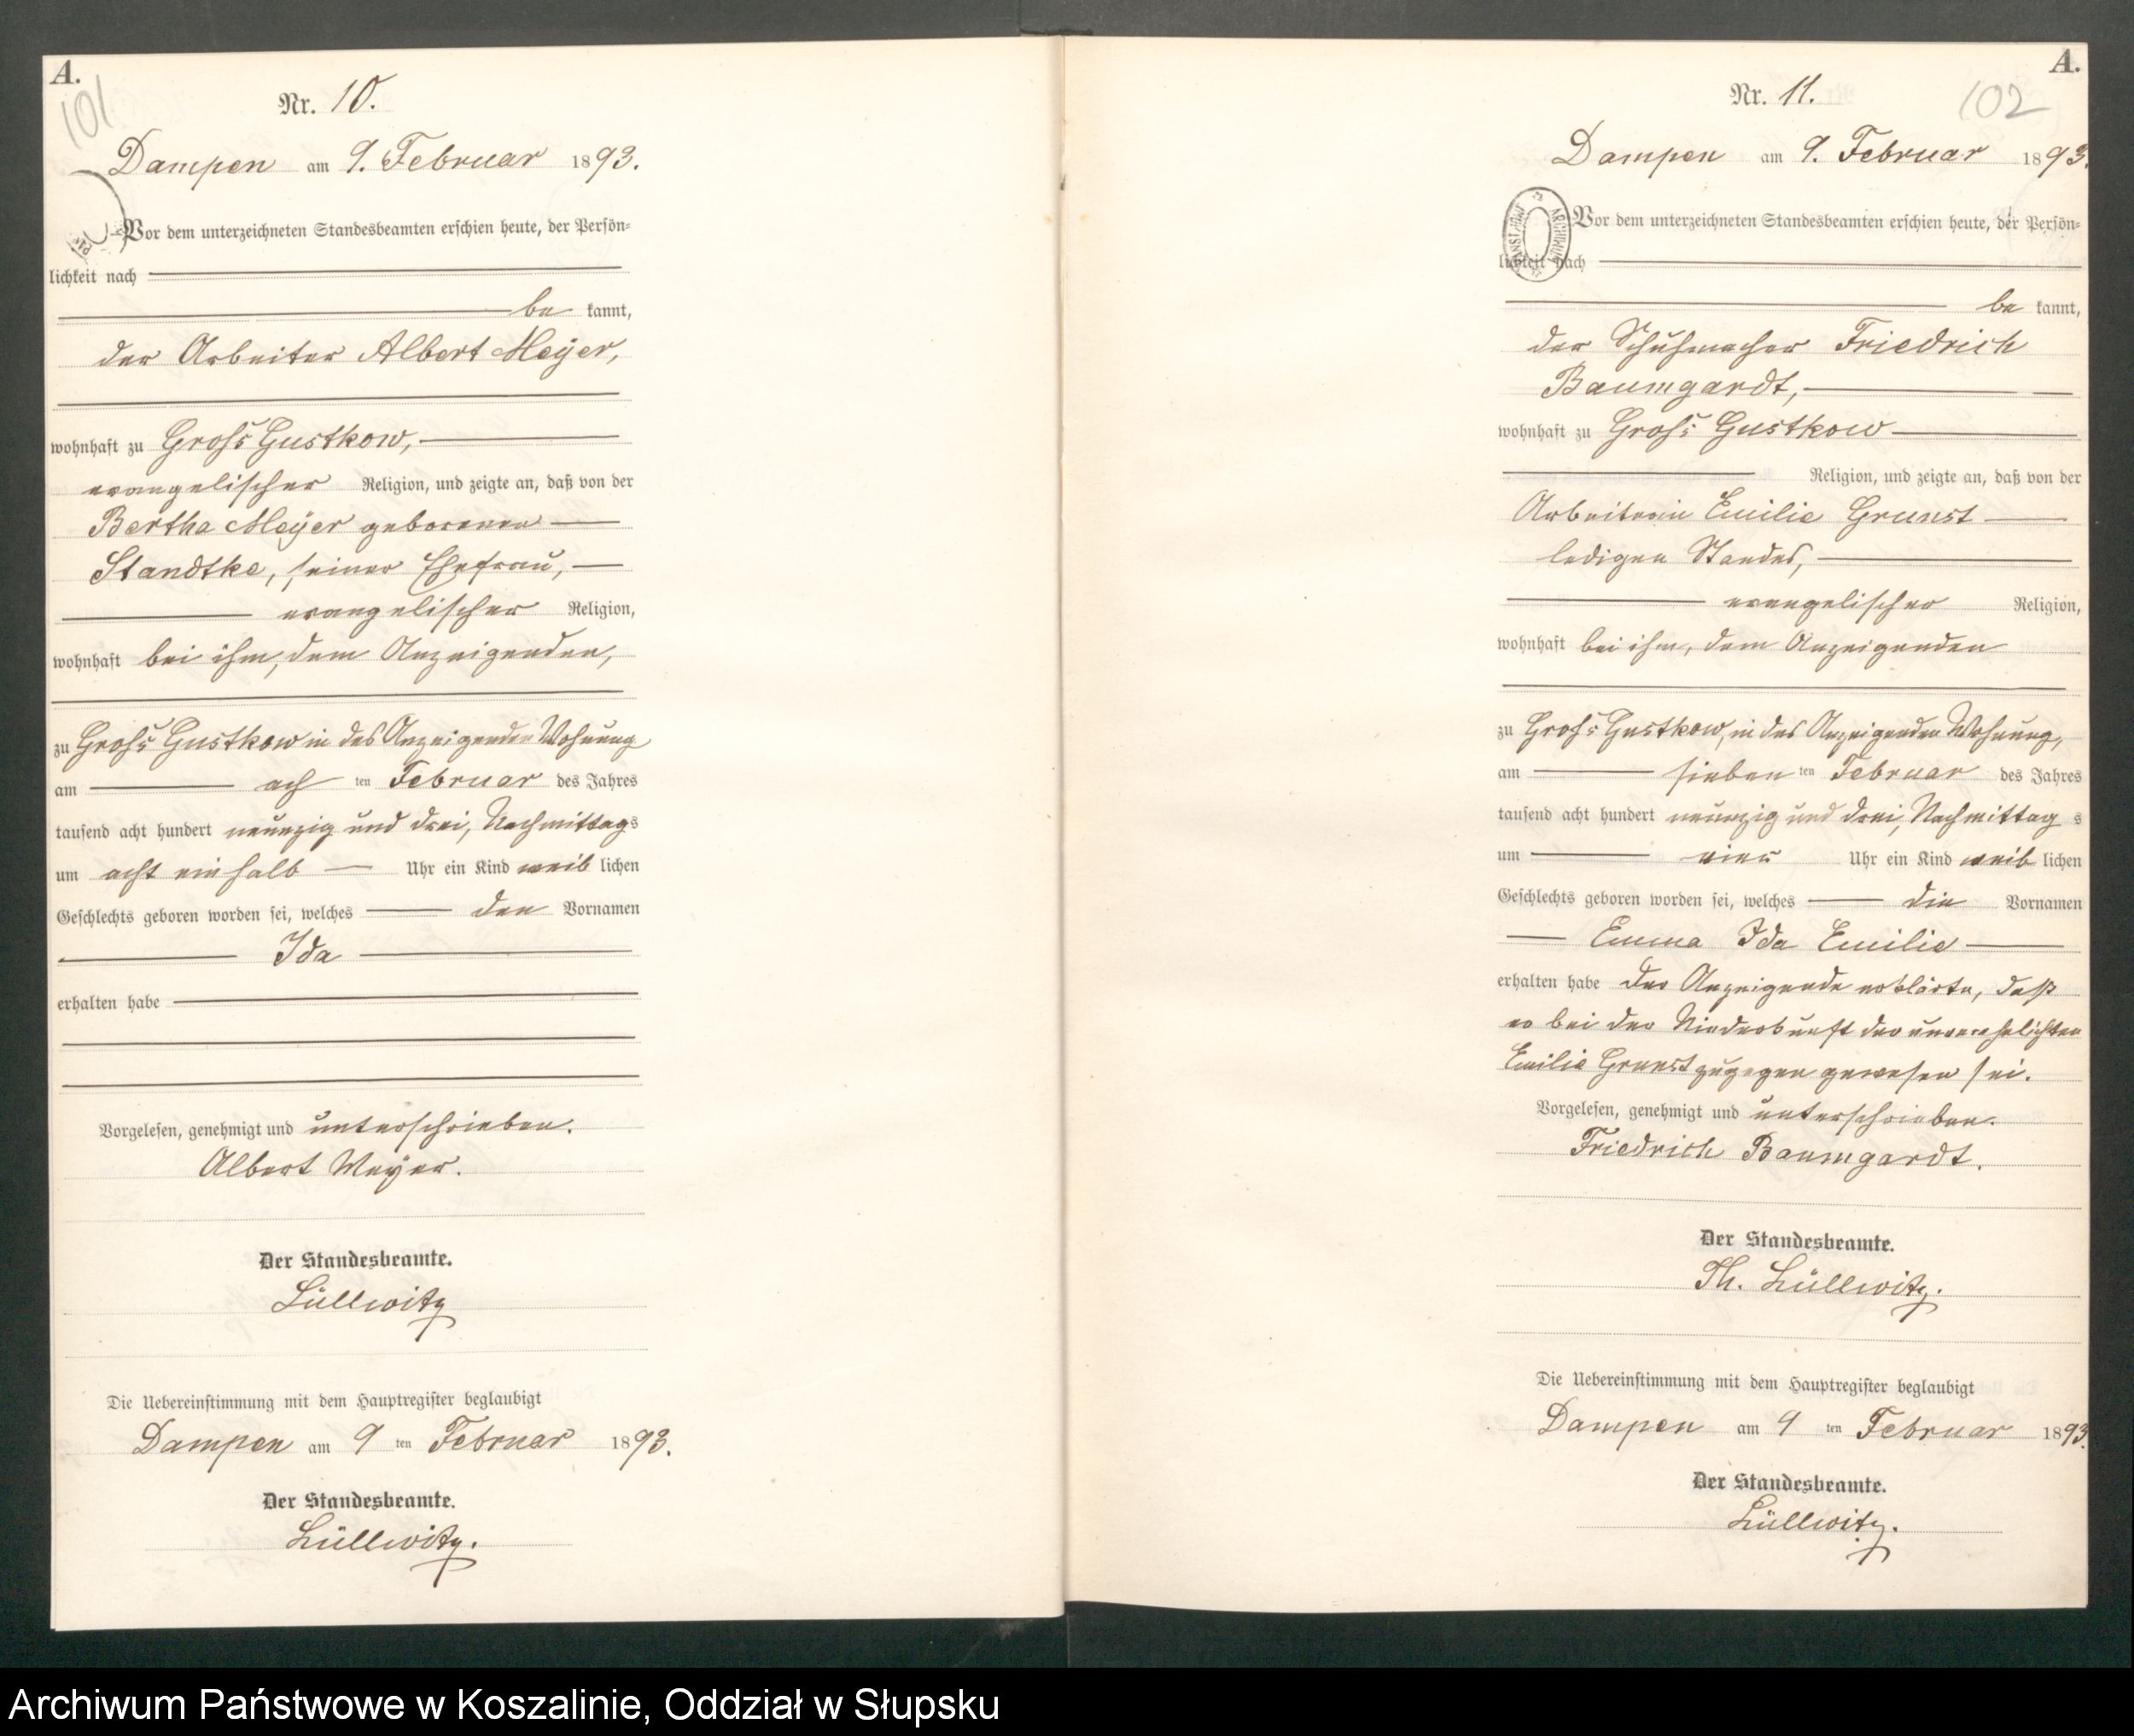 A.
101
Nr. 10.
Dampen am 9. Februar 1893.
Vor dem unterzeichneten Standesbeamten erschien heute, der Persön-
lichkeit nach
be kannt,
der Arbeiter Albert Meÿer,
wohnhaft zu Groß Gustkow,
evangelischer Religion, und zeigte an, daß von der
Bertha Meÿer geborenen
Standtke, seiner Ehefrau,
evangelischer Religion,
wohnhaft bei ihm, dem Anzeigenden,
zu Groß Gustkow in des Anzeigenden Wohnung
am ach ten Februar des Jahres
tausend acht hundert neunzig und drei, Nachmittags
um acht ein halb Uhr ein Kind weib lichen
Geschlechts geboren worden sei, welches den Vornamen
Ida
erhalten habe
Vorgelesen, genehmigt und unterschrieben.
Albert Meÿer.
Der Standesbeamte.
Lüllwitz
Die Uebereinstimmung mit dem Hauptregister beglaubigt
Dampen am 9 ten Februar 1893.
Der Standesbeamte.
Lüllwitz.
A.
102
Nr. 11.
Dampen am 9. Februar 1893.
Vor dem unterzeichneten Standesbeamten erschien heute, der Persön-
lichkeit nach
be kannt,
der Schuhmacher Friedrich
Baumgardt,
wohnhaft zu Groß Gustkow
Religion, und zeigte an, daß von der
Arbeiterin Emilie Grunst
ledigen Standes,
evangelischer Religion,
wohnhaft bei ihm, dem Anzeigenden
zu Groß Gustkow, in des Anzeigenden Wohnung,
am sieben ten Februar des Jahres
tausend acht hundert neunzig und drei, Nachmittag s
um vier Uhr ein Kind weib lichen
Geschlechts geboren worden sei, welches die Vornamen
Emma Ida Emilie
erhalten habe Der Anzeigende erklärte, daß
er bei der Niederkunft der unverehelichten
Emilie Grunst zugegen gewesen sei.
Vorgelesen, genehmigt und unterschrieben.
Friedrich Baumgardt.
Der Standesbeamte.
Th. Lüllwitz.
Die Uebereinstimmung mit dem Hauptregister beglaubigt
Dampen am 9 ten Februar 1893.
Der Standesbeamte.
Lüllwitz.
Archiwum Państwowe w Koszalinie, Oddział w Słupsku